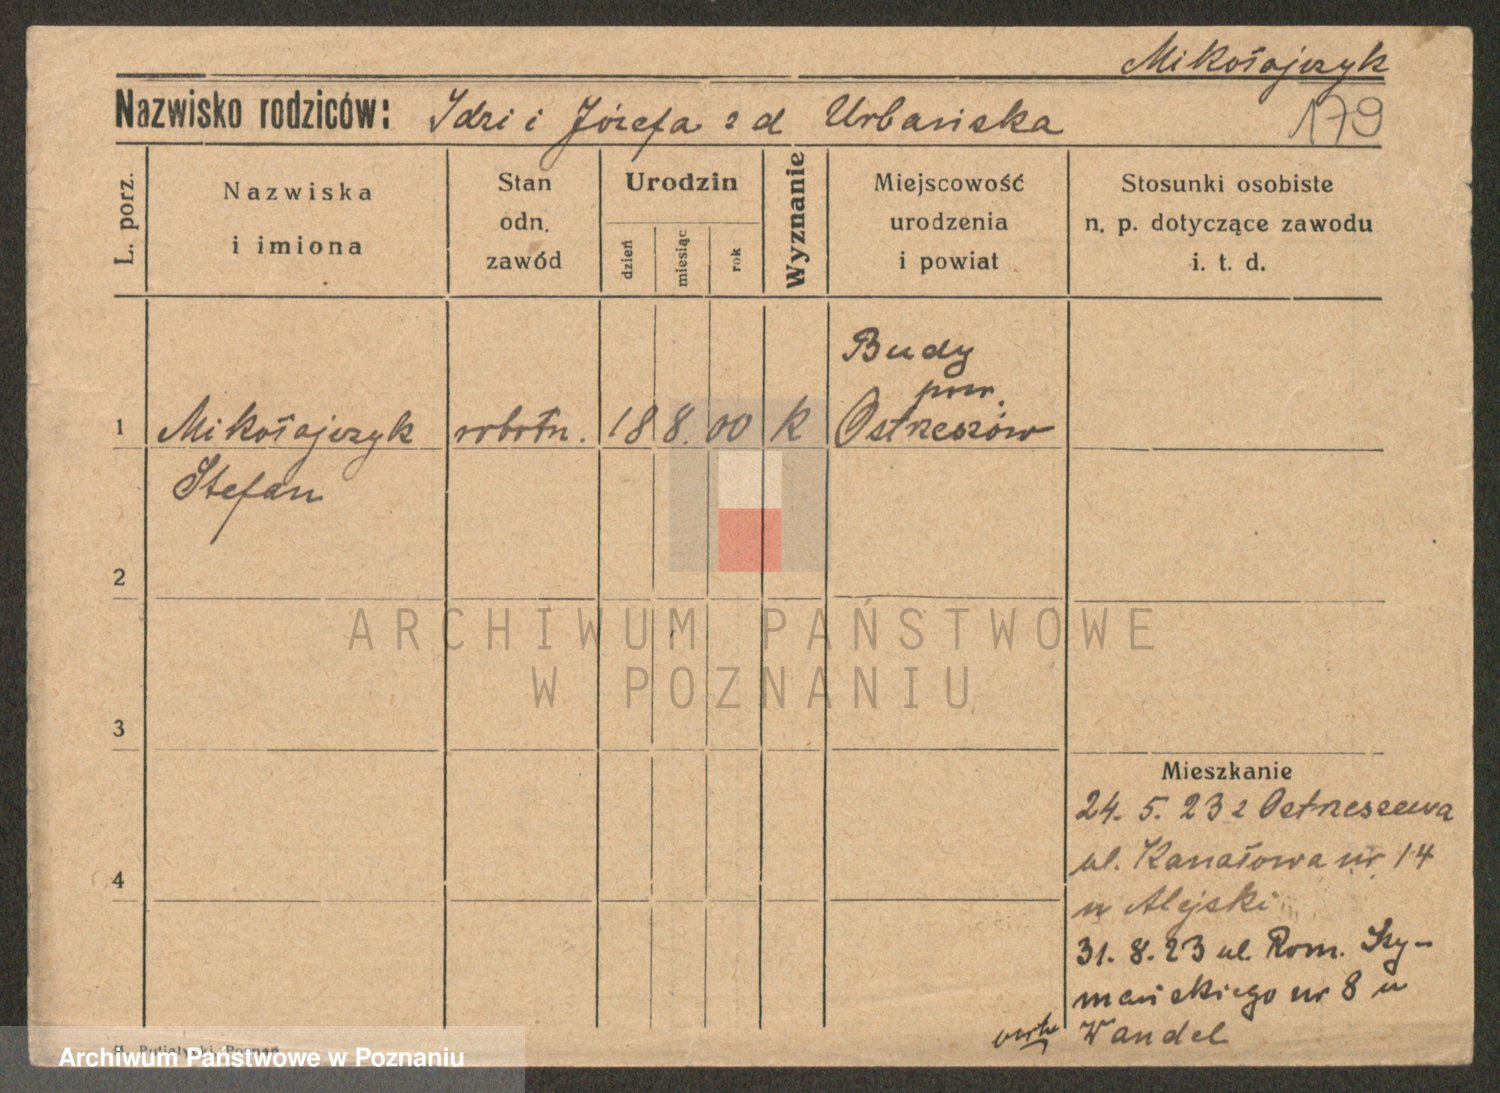 Mikołajczyk
Nazwisko rodziców: Idzi i Józefa z d Urbańska
179
L. porz.
Nazwiska
i imiona
Stan
odn.
zawód
Urodzin
dzień
miesiąc
rok
Wyznanie
Miejscowość
urodzenia
i powiat
Stosunki osobiste
n. p. dotyczące zawodu
i. t. d.
1
Mikołajczyk
Stefan
robotn.
18
8.
00
k
Budy
pow.
Ostrzeszów
2
3
4
Mieszkanie
24. 5. 23 z Ostrzeszewa
ul. Kanałowa nr 14
u Alejski
31. 8. 23 ul. Rom. Szy-
mańskiego nr 8 u
Wandel
verte
ARCHIWUM PAŃSTWOWE
W POZNANIU
Archiwum Państwowe w Poznaniu